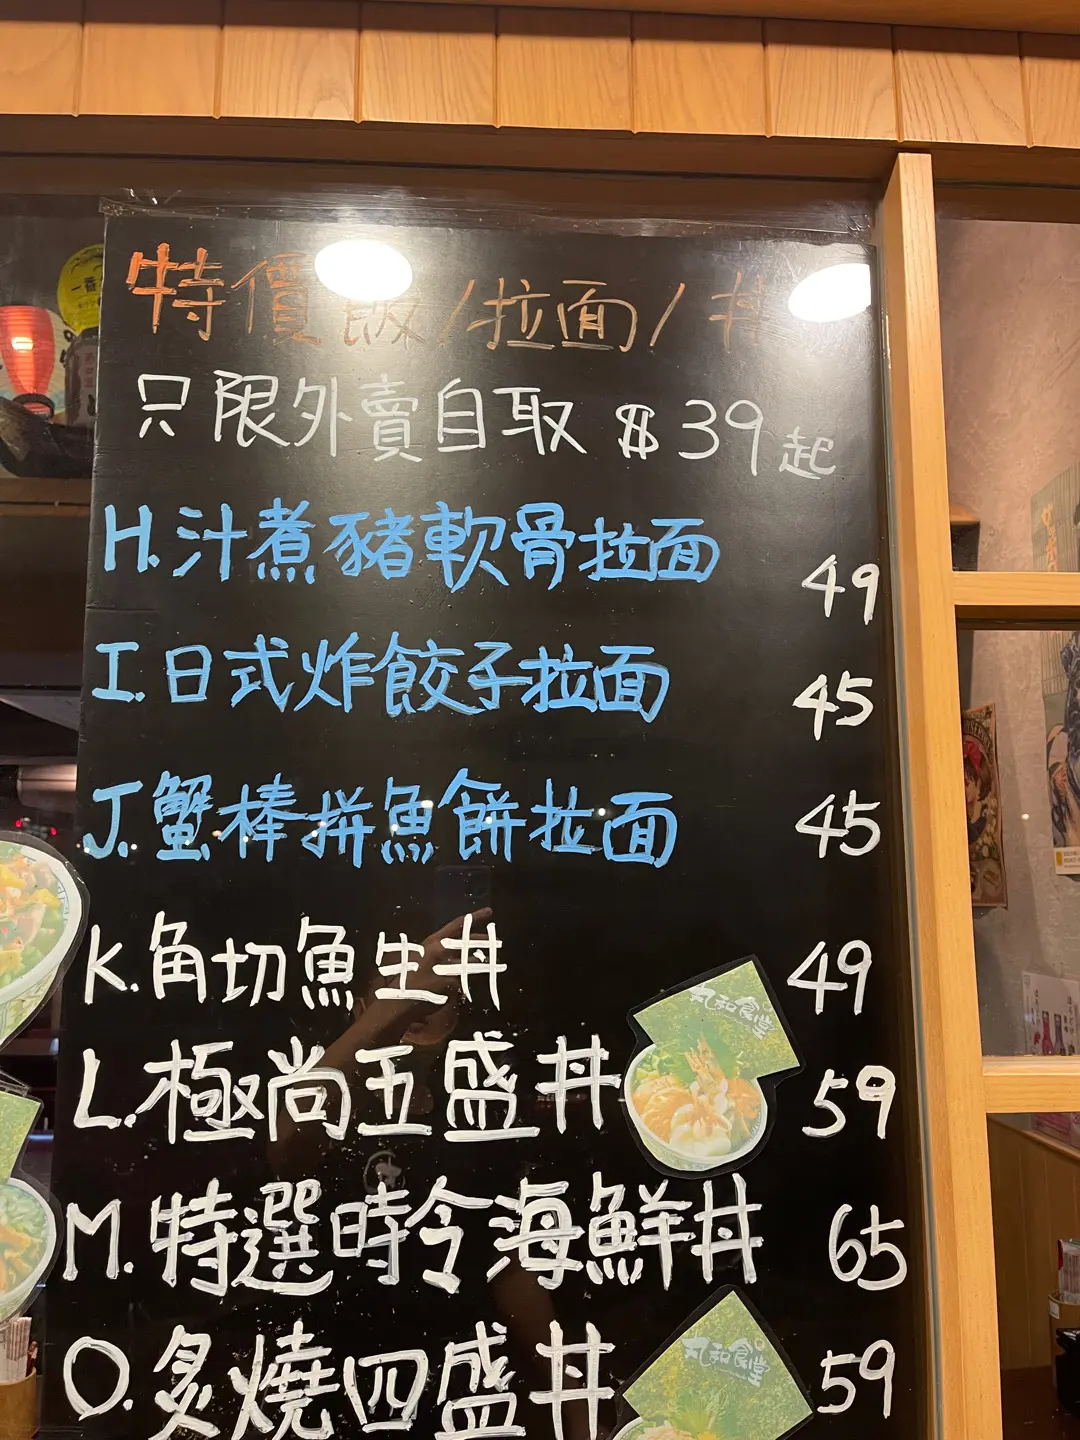 特價飯/拉面/丼
只限外賣自取 $39起
H.汁煮豬軟骨拉面 49
I.日式炸餃子拉面 45
J.蟹棒拼魚餅拉面 45
K.角切魚生丼 49
L.極尚五盛丼 59
丸和食堂
M.特選時令海鮮丼 65
O.炙燒四盛丼 59
丸和食堂
一番